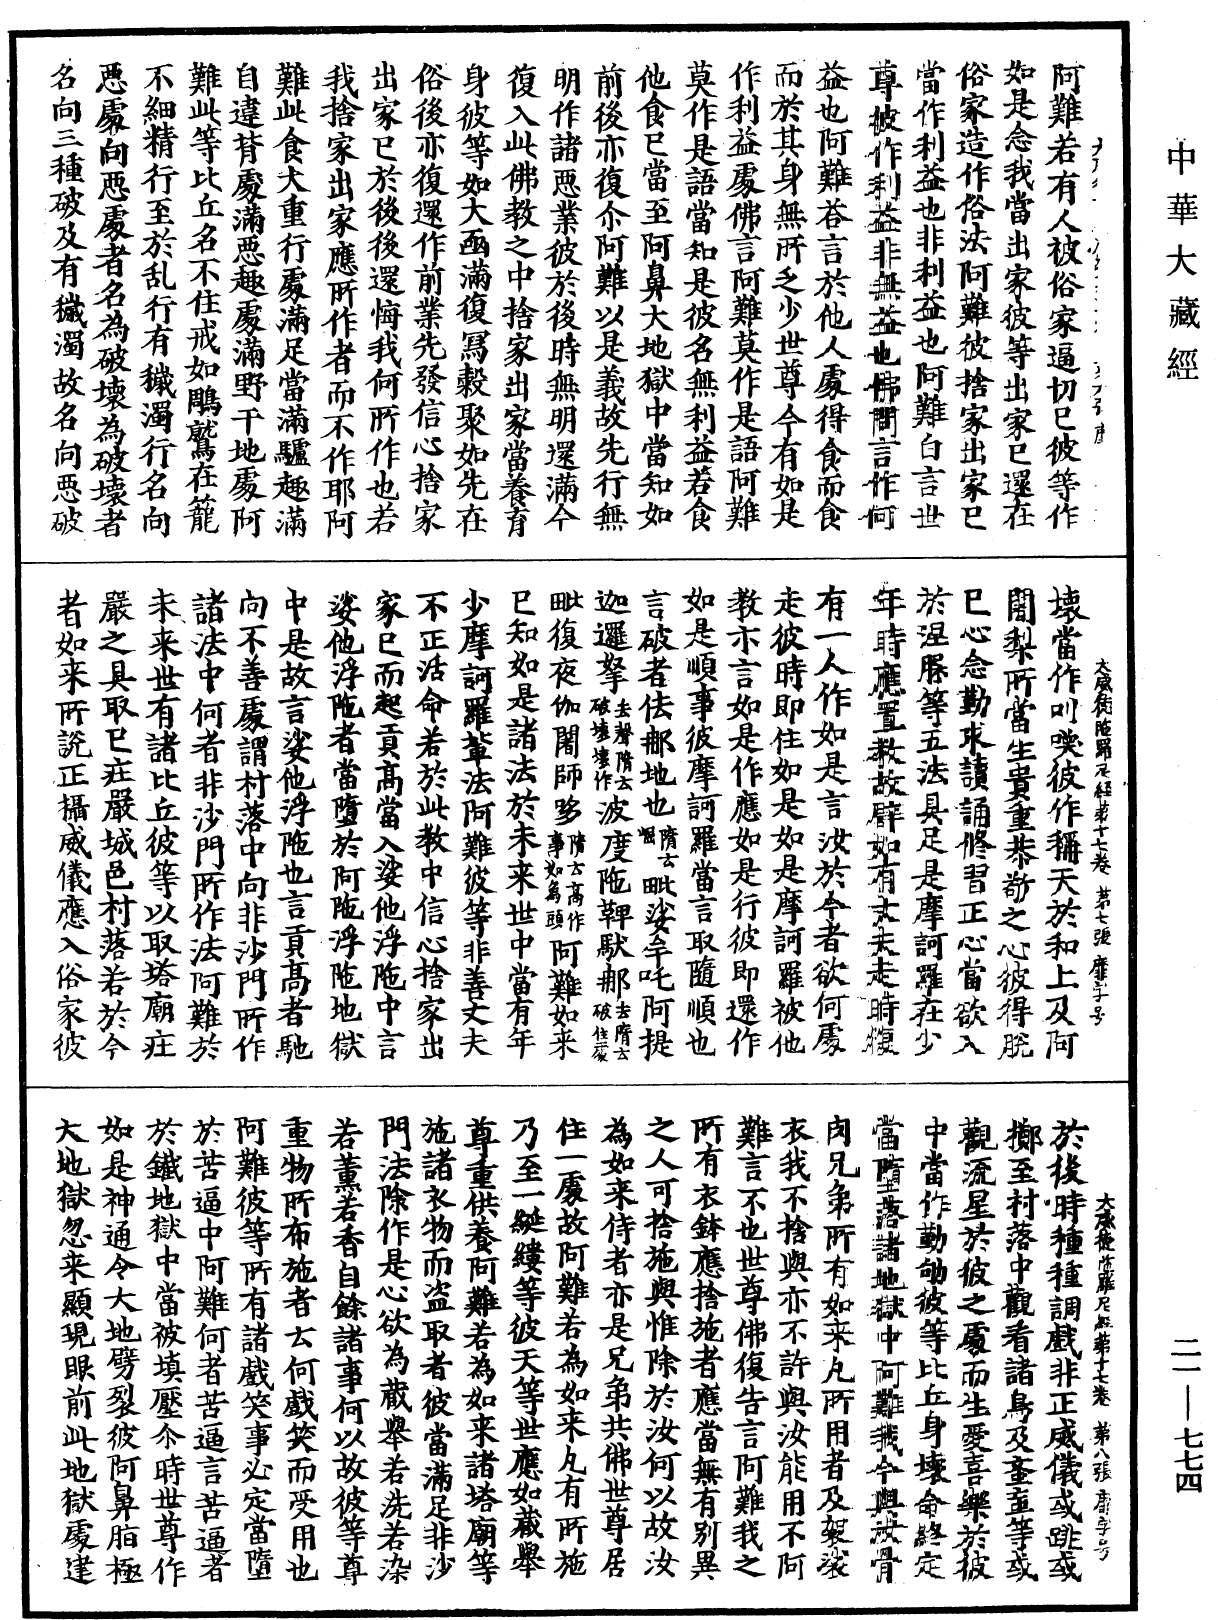 中華大藏經
阿難若有人被俗家逼切已彼等作
如是念我當出家彼等出家已還在
俗家造作俗法阿難彼捨家出家已
當作利益也非利益也阿難白言世
尊彼作利益非無益也佛問言作何
益也阿難荅言於他人處得食而食
而於其身無所乏少世尊今有如是
作利益處佛言阿難莫作是語阿難
莫作是語當知是彼名無利益若食
他食已當至阿鼻大地獄中當知如
前後亦復尒阿難以是義故先行無
明作諸惡業彼於後時無明還滿今
復入此佛教之中捨家出家當養育
身彼等如大函滿復寫穀聚如先在
俗後亦復還作前業先發信心捨家
出家已於後後還悔我何所作也若
我捨家出家應所作者而不作耶阿
難此食大重行處滿足當滿驢趣滿
自違背處滿惡趣處滿野干地處阿
難此等比丘名不住戒如鵰鷲在籠
不細精行至於乱行有穢濁行名向
惡處向惡處者名為破壞為破壞者
名向三種破及有穢濁故名向惡破
大威德陁羅尼經第十七卷 第七張 靡字号
壞當作叫喚彼作稱天於和上及阿
闍梨所當生貴重恭敬之心彼得脫
已心念勤求讀誦修習正心當欲入
於涅槃等五法具足是摩訶羅在少
年時應置教故譬如有丈夫走時復
有一人作如是言汝於今者欲何處
走彼時即住如是如是摩訶羅被他
教亦言如是作應如是行彼即還作
如是順事彼摩訶羅當言取隨順也
言破者佉那地也隋云毗娑牟吒阿提
迦邏拏去聲隋云破壞壞作波度陁鞞馱那去隋云破住處
毗復夜伽闍師哆隋云高作事如為頭阿難如来
已知如是諸法於未来世中當有年
少摩訶羅輩法阿難彼等非善丈夫
不正活命若於此教中信心捨家出
家已而起貢高當入娑他浮陁中言
娑他浮陁者當墮於阿陁浮陁地獄
中是故言娑他浮陁也言貢高者馳
向不善處謂村落中向非沙門所作
諸法中何者非沙門所作法阿難於
未来世有諸比丘彼等以取塔廟疘
嚴之具取已疘嚴城邑村落若於今
者如来所說正攝威儀應入俗家彼
大威德陁羅尼經第十七卷 第八張 靡字号
於後時種種調戲非正威儀或跳或
擲至村落中觀看諸鳥及童䇄等或
觀流星於彼之處而生愛喜樂於彼
中當作勤劬彼等比丘身壞命終定
當墮落諸地獄中阿難我今與汝骨
肉兄弟所有如来凡所用者及袈裟
衣我不捨與亦不許與汝能用不阿
難言不也世尊佛復告言阿難我之
所有衣鉢應捨施者應當無有別異
之人可捨施與惟除於汝何以故汝
為如来侍者亦是兄弟共佛世尊居
住一處故阿難若為如来凡有所施
乃至一綖縷等彼天等世應如藏舉
尊重供養阿難若為如来諸塔廟等
施諸衣物而盗取者彼當滿足非沙
門法除作是心欲為藏舉若洗若染
若薰若香自餘諸事何以故彼等尊
重物所布施者云何戲笑而受用也
阿難彼等所有諸戲笑事必定當墮
於苦逼中阿難何者苦逼言苦逼者
於鐵地獄中當被填壓尒時世尊作
如是神通令大地劈裂彼阿鼻脂極
大地獄忽来顯現眼前此地獄處達
二一—七七四